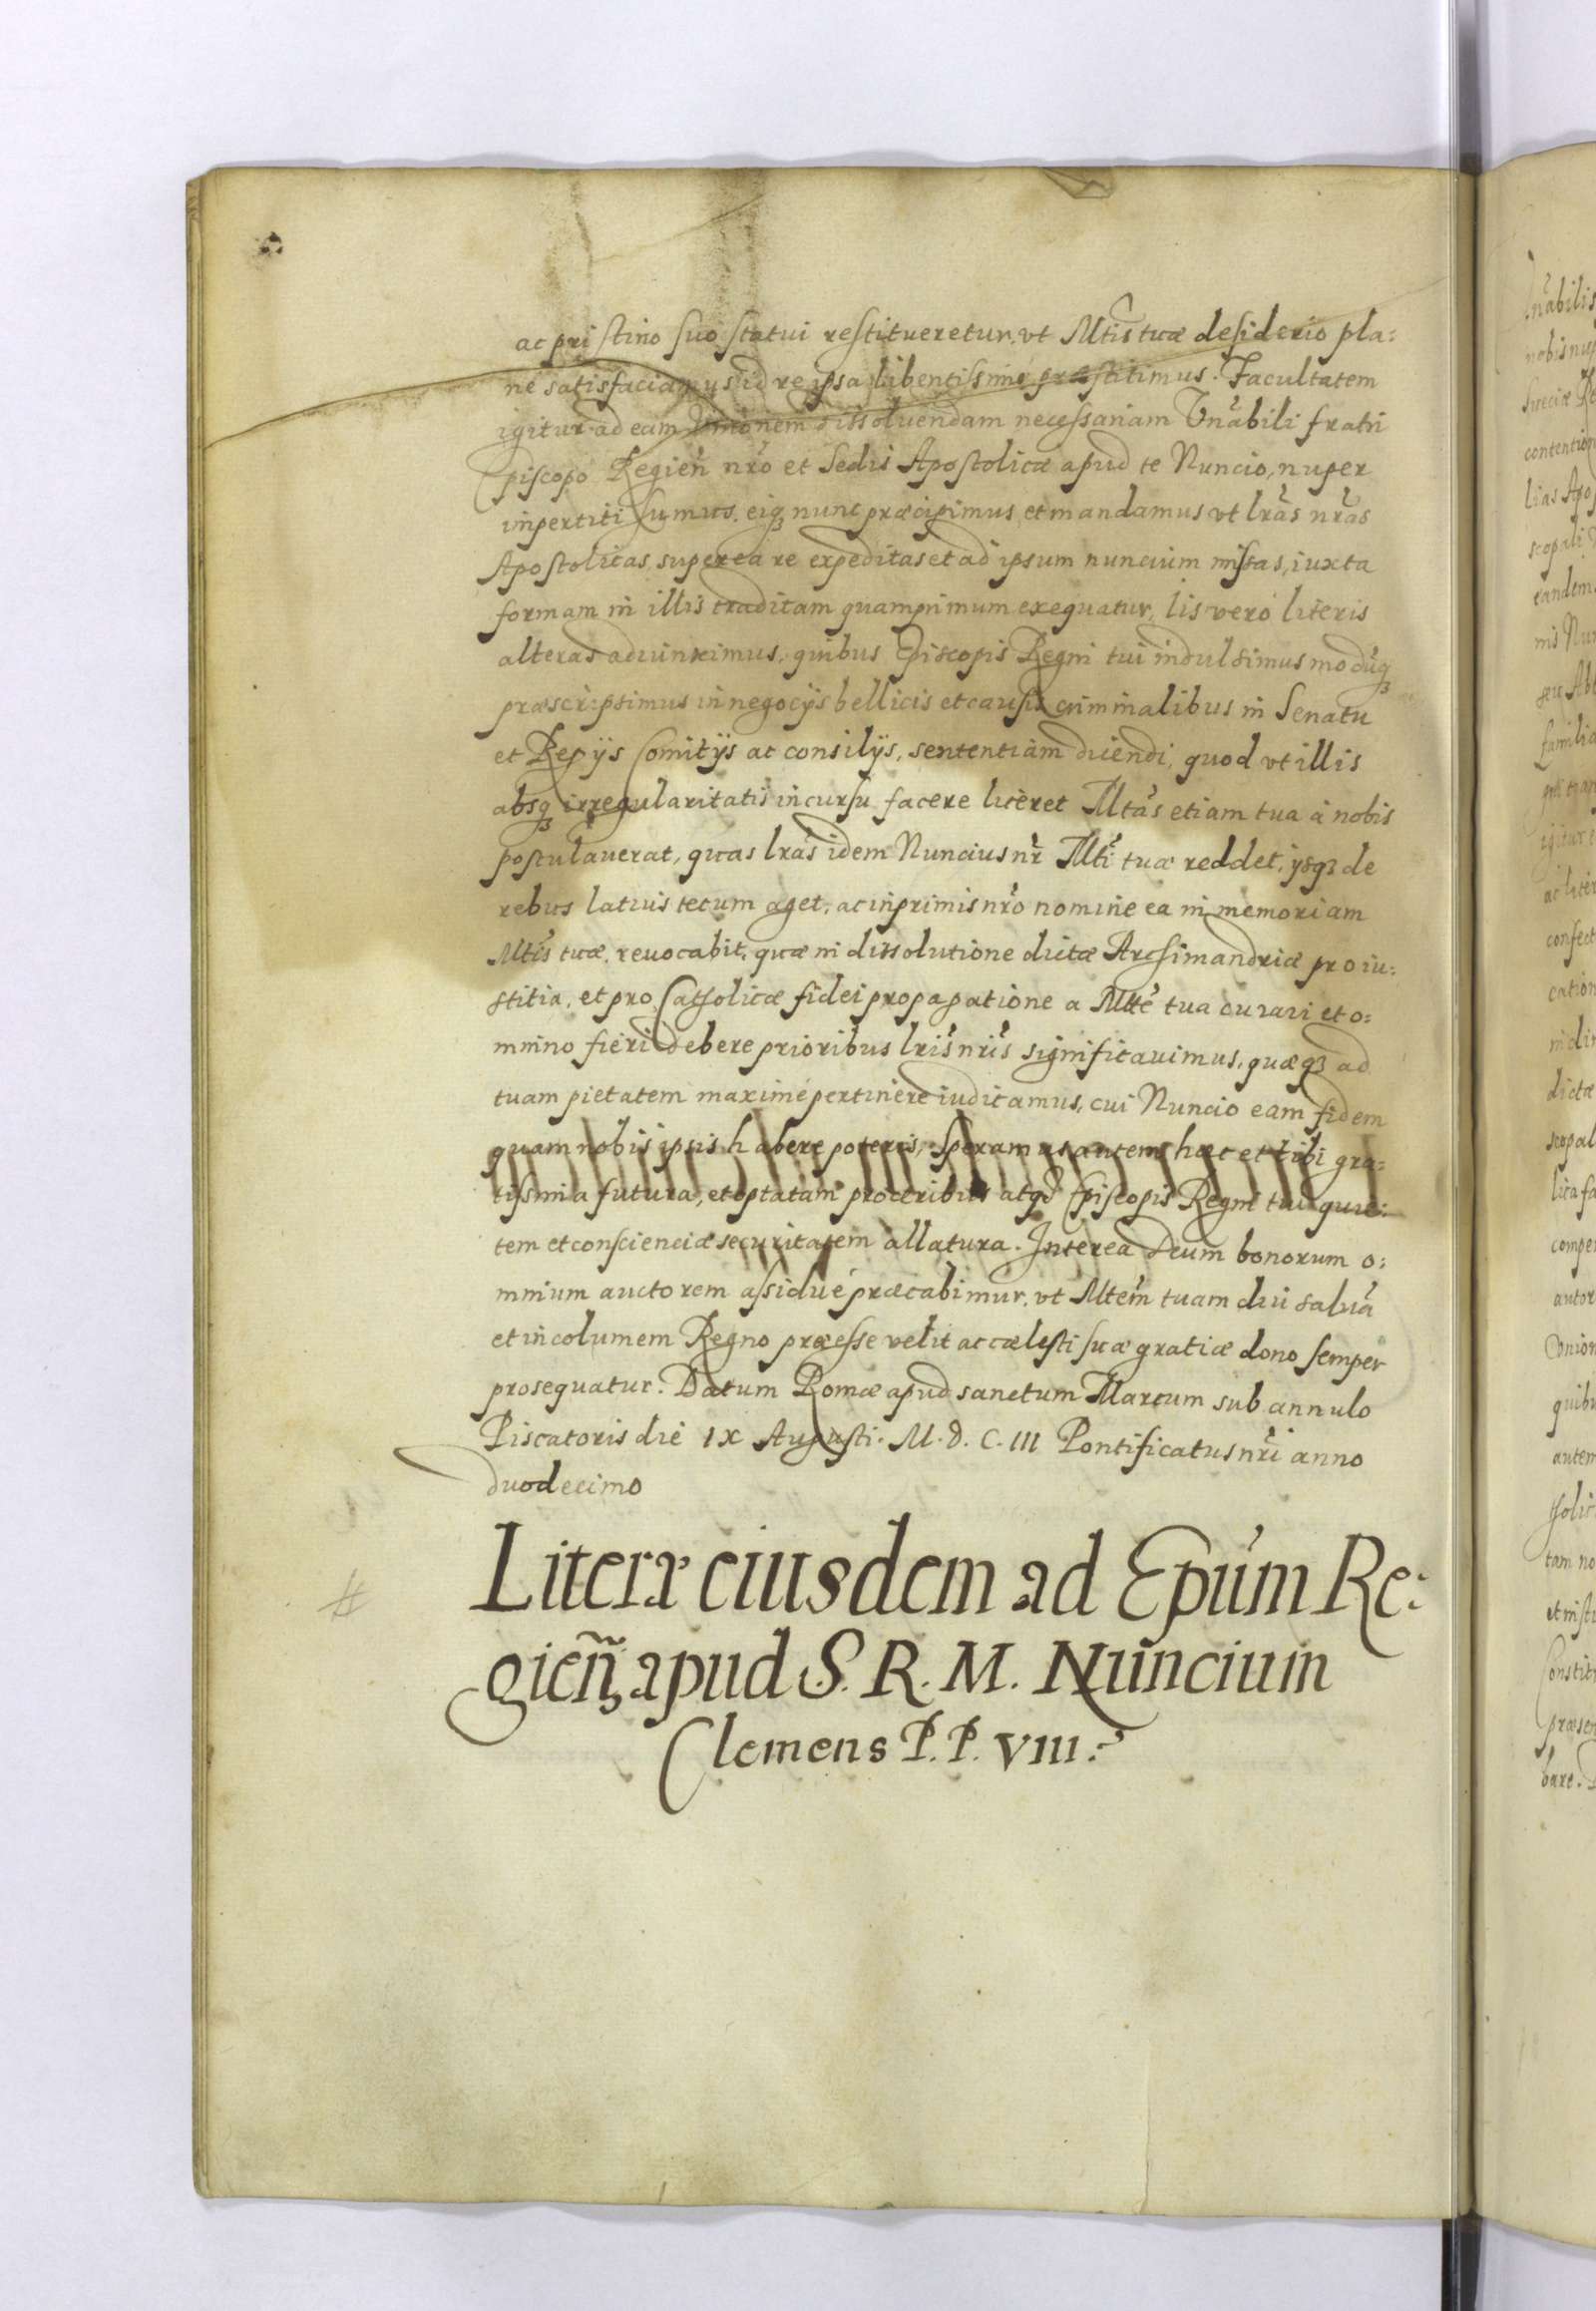 ac pristino suo statui restitueretur, vt Mtis tuæ desiderio pla:
né satisfaciamus id re ipsa libentissime præstitimus. Facultatem
igitur ad eam Vnionem dissoluendam necessariam Vnabili fratri
Episcopo Regien nro et Sedis Apostolicæ apud te Nuncio, nuper
inpertiti sumus, eiq3 nunc præcipimus, et mandamus vt lras nras
Apostolicas, super ea re expeditas et ad ipsum nuncium missas, iuxta
formam in illis traditam quamprimum exequatur, Iis veró literis
alteras adiunximus, quibus Episcopis Regni tui indulsimus modúq3
præscripsimus in negocijs bellicis et causis criminalibus in Senatu
et Regijs Comitijs ac consilijs, sententiam dicendi, quod vt illis
absq3 irregularitatis incursu facere liceret Mtas etiam tua á nobis
postulauerat, quas lras idem Nuncius nr Mti tuæ reddet, ijsq3 de
rebus latius tecum aget, ac inprimis nro nomine ea in memoriam
Mtis tuæ, reuocabit, quæ in dissolutione dictæ Archimandriæ pro iu:
stitia, et pro Catholicæ fidei propagatione a Mtte tua curari et o:
mnino fieri debere prioribus lris nris significauimus, quæq3 ad
tuam pietatem maximé pertinere iudicamus, cui Nuncio eam fidem
quam nobis ipsis habere poteris, speramus autem hæc et tibi gra:
tissima futura, et optatam proceribus atq3 Episcopis Regni tui quie:
tem et conscienciæ securitatem allatura. Interea Deum bonorum o:
mnium auctorem assidué præcabimur, vt Mtem tuam diu saluá
et incolumem Regno præesse velit ac cælesti suæ gratiæ dono semper
prosequatur. Datum Romæ apud sanctum Marcum sub annulo
Piscatoris die IX Augusti. M. D. C. III Pontificatus nri anno
duodecimo
Literæ eiusdem ad Epúm Re:
gieñ apud S. R. M. Nuncium
Clemens P. P. VIII.